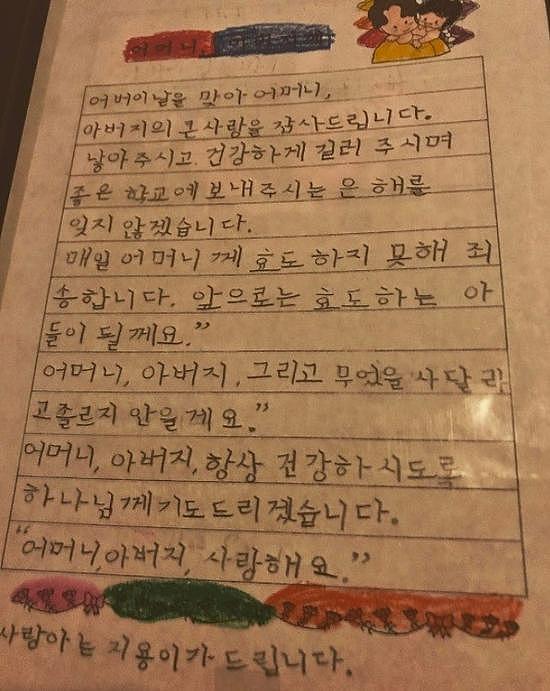 어머니,
어버이날을 맞아 어머니,
아버지의 큰사랑을 감사드립니다.
낳아주시고 건강하게 길러 주시며
좋은 학교에 보내주시는 은 해를
잊지 않겠습니다.
매일 어머니 께 효도 하지 못해 죄
송합니다. 앞으로는 효도하는 아
들이 될께요.”
어머니, 아버지, 그리고 무엇을 사달라
고졸르지 안을게요.”
어머니, 아버지, 항상 건강하시도록
하나님께기도드리겠습니다.
“어머니,아버지, 사랑해요.”
사랑아는 지용이가 드립니다.